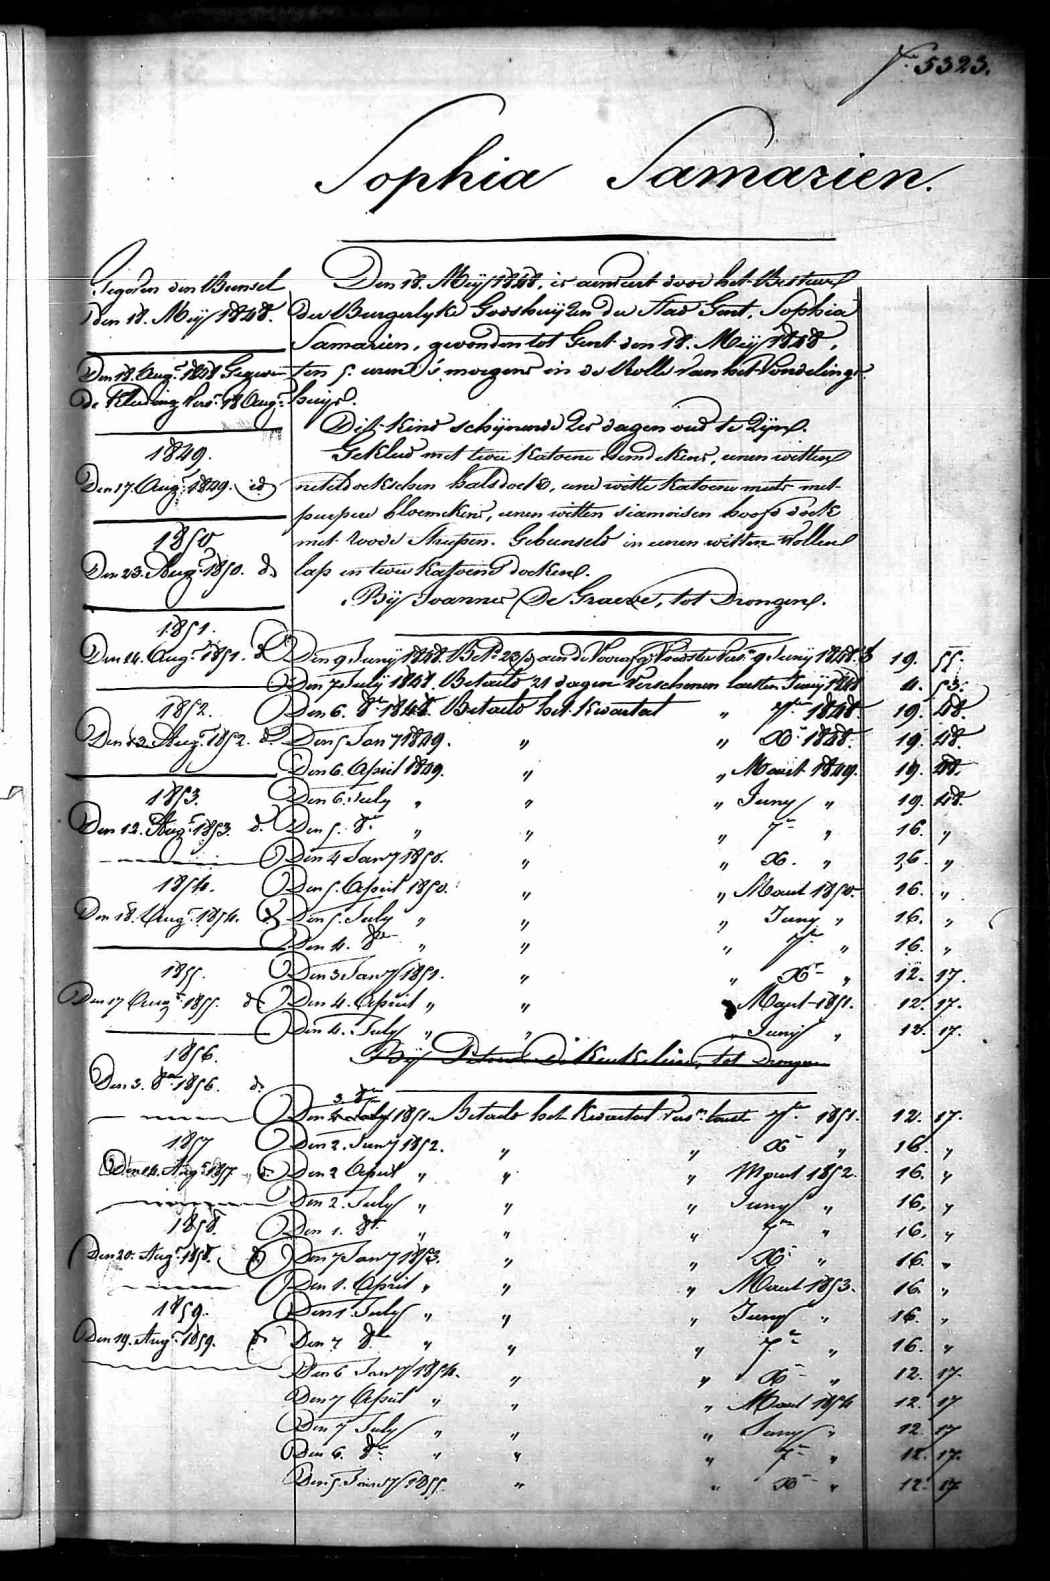 N.º 5323.
Sophia Samarien.
Gegeven den Bunsel
den 18. Meij 1848.
Den 18. Aug.t 1848 Gegeven
de Kleeding vers. 18 Aug.t
1849.
Den 17. Aug.t 1849. id
1850
Den 23. Aug.t 1850. d.
1851.
Den 14. Aug.t 1851. d.
1852.
Den 13. Aug.t 1852. d.
1853.
Den 12. Aug.t 1853. d.
1854.
Den 18. Aug.t 1854. d.
1855.
Den 17 Aug.t 1855. d.
1856.
Den 3. 8.re 1856. d.
1857
Den 14. Aug.t 1857 d.
1858.
Den 20. Aug.t 1858. d.
1859.
Den 19. Aug.t 1859. d.
Den 18. Meij 1848, is aenveert door het Bestuer
der Burgerlyke Godshuyzen der Stad Gent, Sophia
Samarien, gevonden tot Gent den 18. Meij 1848,
ten 5. uren 's morgens in de Rolle van het Vondelings-
huijs.
Dit Kind schijnende 2 dagen oud te zijn.
Gekleed met twee katoene hemdekens, eenen witten
neteldoekschen halsdoek, eene witte katoene muts met
purpere bloemekens, eenen witten siamoisen hoofd doek
met roode streepen. Gebunseld in eenen witten wollen
lap en twee katoene doeken.
Bij Joannes De Graeve, tot Drongen.
Den 9 Junij 1848. Bet. 23/ aen de Voorzorg Voedster vers. 9 Junij 1848. 19. 55.
Den 7 July 1848. Betaeld 21 dagen verschenen lasten Junij 1848 4. 53.
Den 6. 8.re 1848. Betaeld het Kwartael " 7.re 1848. 19. 48.
Den 5 Jan.y 1849. " " X.re 1848. 19. 48.
Den 6 April 1849. " " Maert 1849. 19. 48.
Den 6. July " " " Juny " 19. 48.
Den 5. 8.re " " " 7.re " 16. "
Den 4 Jan.y 1850. " " X. " 26. "
Den 5. April 1850. " " Maert 1850. 16. "
Den 5. July " " " Juny " 16. "
Den 4. 8.re " " " 7.re " 16. "
Den 3 Jan.y 1851. " " X.re " 12. 17.
Den 4. April " " " Maert 1851. 12. 17.
Den 4. July " " " Junij " 12. 17.
Bij De Keukeleire, tot Drongen
Den 3 8.re 1851. Betaeld het Kwartael vers. laest 7.re 1851. 12. 17.
Den 2. Jan.y 1852. " " X.re " 16. "
Den 2 April " " " Maert 1852. 16. "
Den 2. July " " " Juny " 16. "
Den 1. 8.re " " " 7.re " 16. "
Den 7 Jan.y 1853. " " X.re " 16. "
Den 1. April " " " Maert 1853. 16. "
Den 1. July " " " Juny " 16. "
Den 7 8.re " " " 7.re " 16. "
Den 6 Jan.y 1854. " " X.re " 12. 17.
Den 7 April " " " Maert 1854 12. 17.
Den 7 July " " " Juny " 12. 17
Den 6. 8.re " " " 7.re " 12. 17.
Den 5. Jan.y 1855. " " X.re " 12. 17.